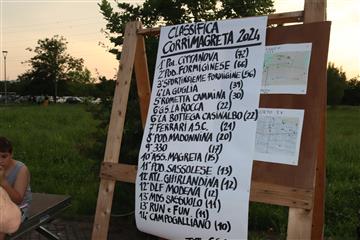 CLASSIFICA
CORRIMAGRETA 2024
1° POL. CITTANOVA (72)
2° POD. FORMIGINESE (66)
3° SPORTINSIEME FORMIGINE (56)
4° LA GUGLIA (39)
5° ROMETTA CAMMINA (30)
6° G.S. LA ROCCA (22)
6° LA BOTTEGA CASINALBO (22)
7° FERRARI A.S.C. (21)
8° POD. MADONNINA (20)
9° 3'30 (17)
10° ASS. MAGRETA (15)
11° POD. SASSOLESE (13)
12° ATL. GHIRLANDINA (12)
12° DLF MODENA (12)
13° MDS SASSUOLO (11)
13° RUN E FUN (11)
14° CAMPOGALLIANO (10)